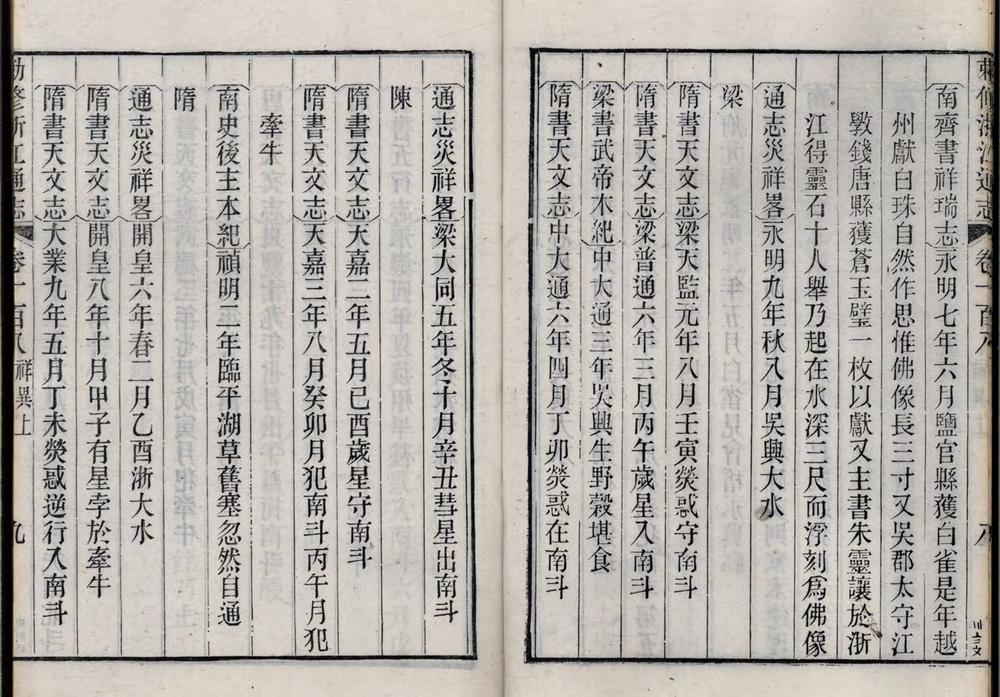 敕修浙江通志 卷一百八 祥異上 八
南齊書祥瑞志永明七年六月鹽官縣獲白雀是年越
州獻白珠自然作思惟佛像長三寸又吳郡太守江
斆錢唐縣獲蒼玉璧一枚以獻又主書朱靈讓於浙
江得靈石十人舉乃起在水深三尺而浮刻爲佛像
通志災祥畧永明九年秋八月吳興大水
梁
隋書天文志梁天監元年八月壬寅熒惑守南斗
隋書天文志梁普通六年三月丙午歲星入南斗
梁書武帝本紀中大通三年吳興生野穀堪食
隋書天文志中大通六年四月丁卯熒惑在南斗
通志災祥畧梁大同五年冬十月辛丑彗星出南斗
陳
隋書天文志天嘉二年五月己酉歲星守南斗
隋書天文志天嘉三年八月癸卯月犯南斗丙午月犯
牽牛
南史後主本紀禎明二年臨平湖草舊塞忽然自通
隋
通志災祥畧開皇六年春二月乙酉浙大水
隋書天文志開皇八年十月甲子有星孛於牽牛
隋書天文志大業九年五月丁未熒惑逆行入南斗
敕修浙江通志 卷一百八 祥異上 九